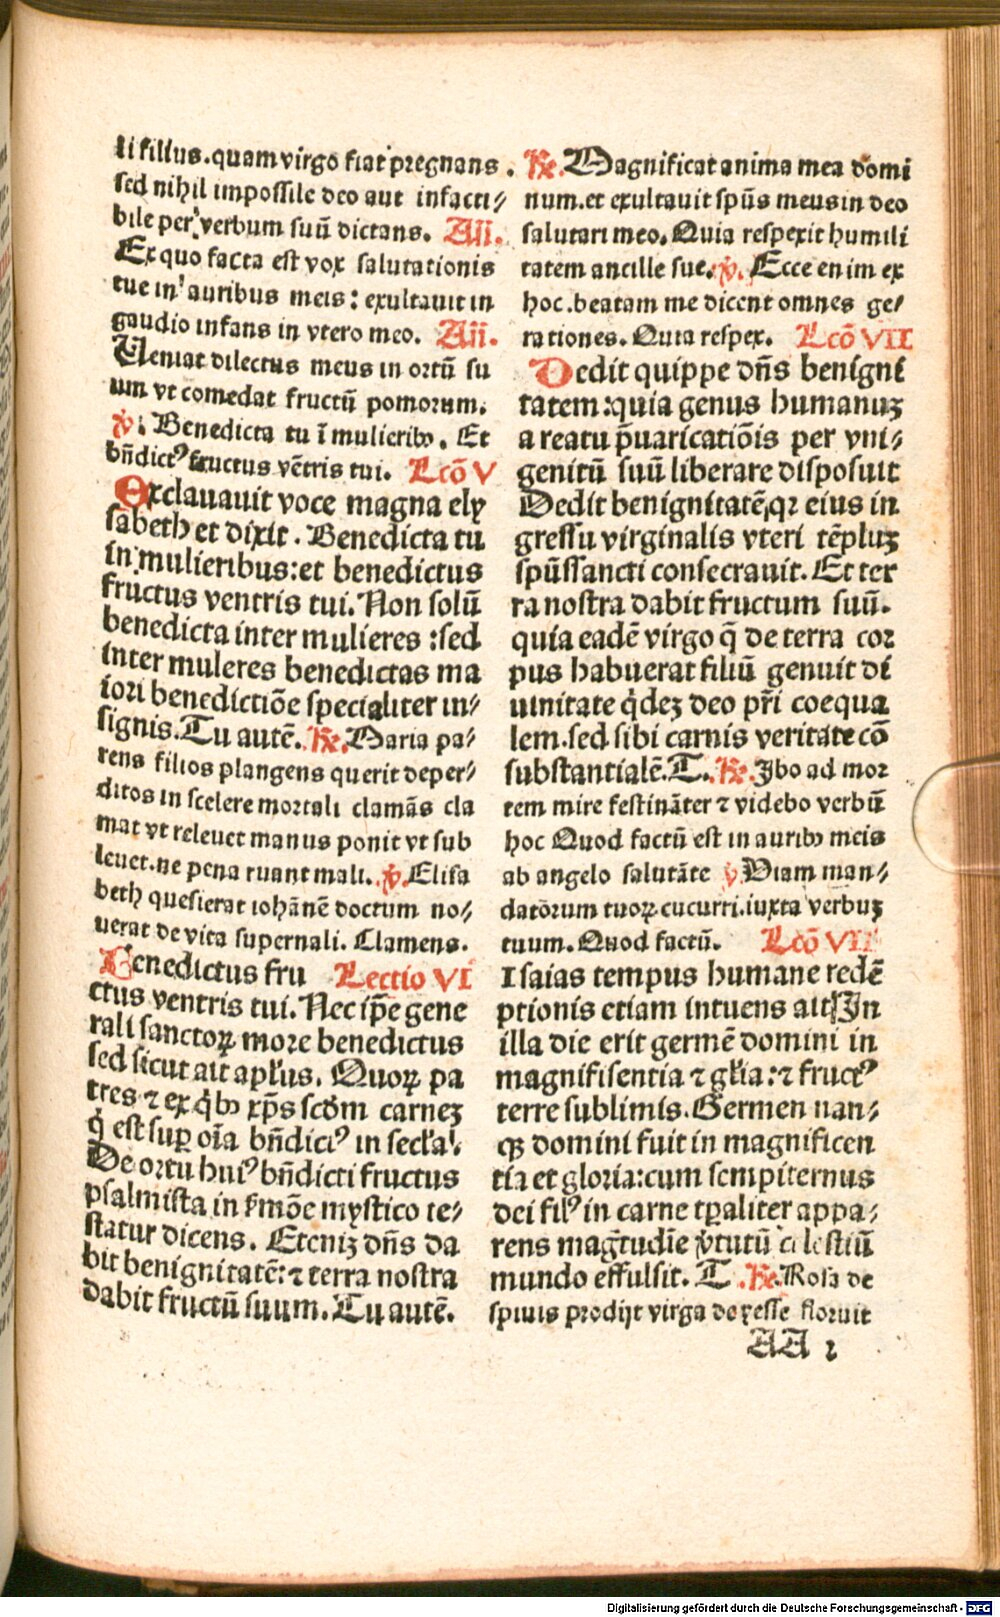 li filius.quam virgo fiat pregnans.
sed nihil impossile deo aut infacti⸗
bile per verbum suū dictans. Añ.
Ex quo facta est vox salutationis
tue in auribus meis: exultauit in
gaudio infans in vtero meo. Añ.
Ueniat dilectus meus in ortū su
um vt comedat fructū pomorum.
℣. Benedicta tu ī mulieribꝰ. Et
bn̄dictꝰ fructus vētris tui. Lcō V
Exclamauit voce magna ely
sabeth et dixit. Benedicta tu
in mulieribus:et benedictus
fructus ventris tui. Non solū
benedicta inter mulieres :sed
inter muleres benedictas ma
iori benedictiōe specialiter in⸗
signis. Tu autē. ℟. Maria pa⸗
rens filios plangens querit deper⸗
ditos in scelere mortali clamās cla
mat vt releuet manus ponit vt sub
leuet.ne pena ruant mali. ℣. Elisa
beth quesierat iohānē doctum no⸗
uerat de vita supernali. Clamens.
Benedictus fru Lectio VI
ctus ventris tui. Nec ip̄e gene
rali sanctoꝝ more benedictus
sed sicut ait apl̄us. Quoꝝ pa
tres ⁊ ex qͥbꝰ xp̄s scd̄m carneꝫ
qͥ est suꝑ oīa bn̄dictꝰ in secl̄a.
De ortu huiꝰ bn̄dicti fructus
psalmista in ẜmōe mystico te⸗
statur dicens. Eteniꝫ dn̄s da
bit benignitatē:⁊ terra nostra
dabit fructū suum. Tu autē.
℟. Magnificat anima mea domi
num.et exultauit sp̄ūs meus in deo
salutari meo. Quia respexit humili
tatem ancille sue. ℣. Ecce enim ex
hoc.beatam me dicent omnes ge⸗
rationes. Quia respex. Lcō VII
Dedit quippe dn̄s benigni
tatem:quia genus humanuꝫ
a reatu p̄uaricatiōis per vni⸗
genitū suū liberare disposuit
Dedit benignitatē,qꝛ eius in
gressu virginalis vteri tēpluꝫ
sp̄ūssancti consecrauit. Et ter
ra nostra dabit fructum suū.
quia eadē virgo q̄ de terra cor
pus habuerat filiū genuit di
uinitate qͥdeꝫ deo pr̄i coequa
lem.sed sibi carnis veritate cō
substantialē. T. ℟. Ibo ad mor
tem mire festināter ⁊ videbo verbū
hoc Quod factū est in auribꝰ meis
ab angelo salutāte ℣ Viam man⸗
datōrum tuoꝝ cucurri.iuxta verbuꝫ
tuum. Quod factū. Lcō VII
Isaias tempus humane redē
ptionis etiam intuens ait In
illa die erit germē domini in
magnifisentia ⁊ gl̄ia:⁊ fructꝰ
terre sublimis. Germen nan⸗
qꝫ domini fuit in magnificen
tia et gloria:cum sempiternus
dei filꝰ in carne tꝑaliter appa⸗
rens magn̄tudīe v̓tutū celestiū
mundo effulsit. T. ℟. Rosa de
spinis prodijt virga de yesse floruit
AA 2
Digitalisierung gefördert durch die Deutsche Forschungsgemeinschaft - DFG